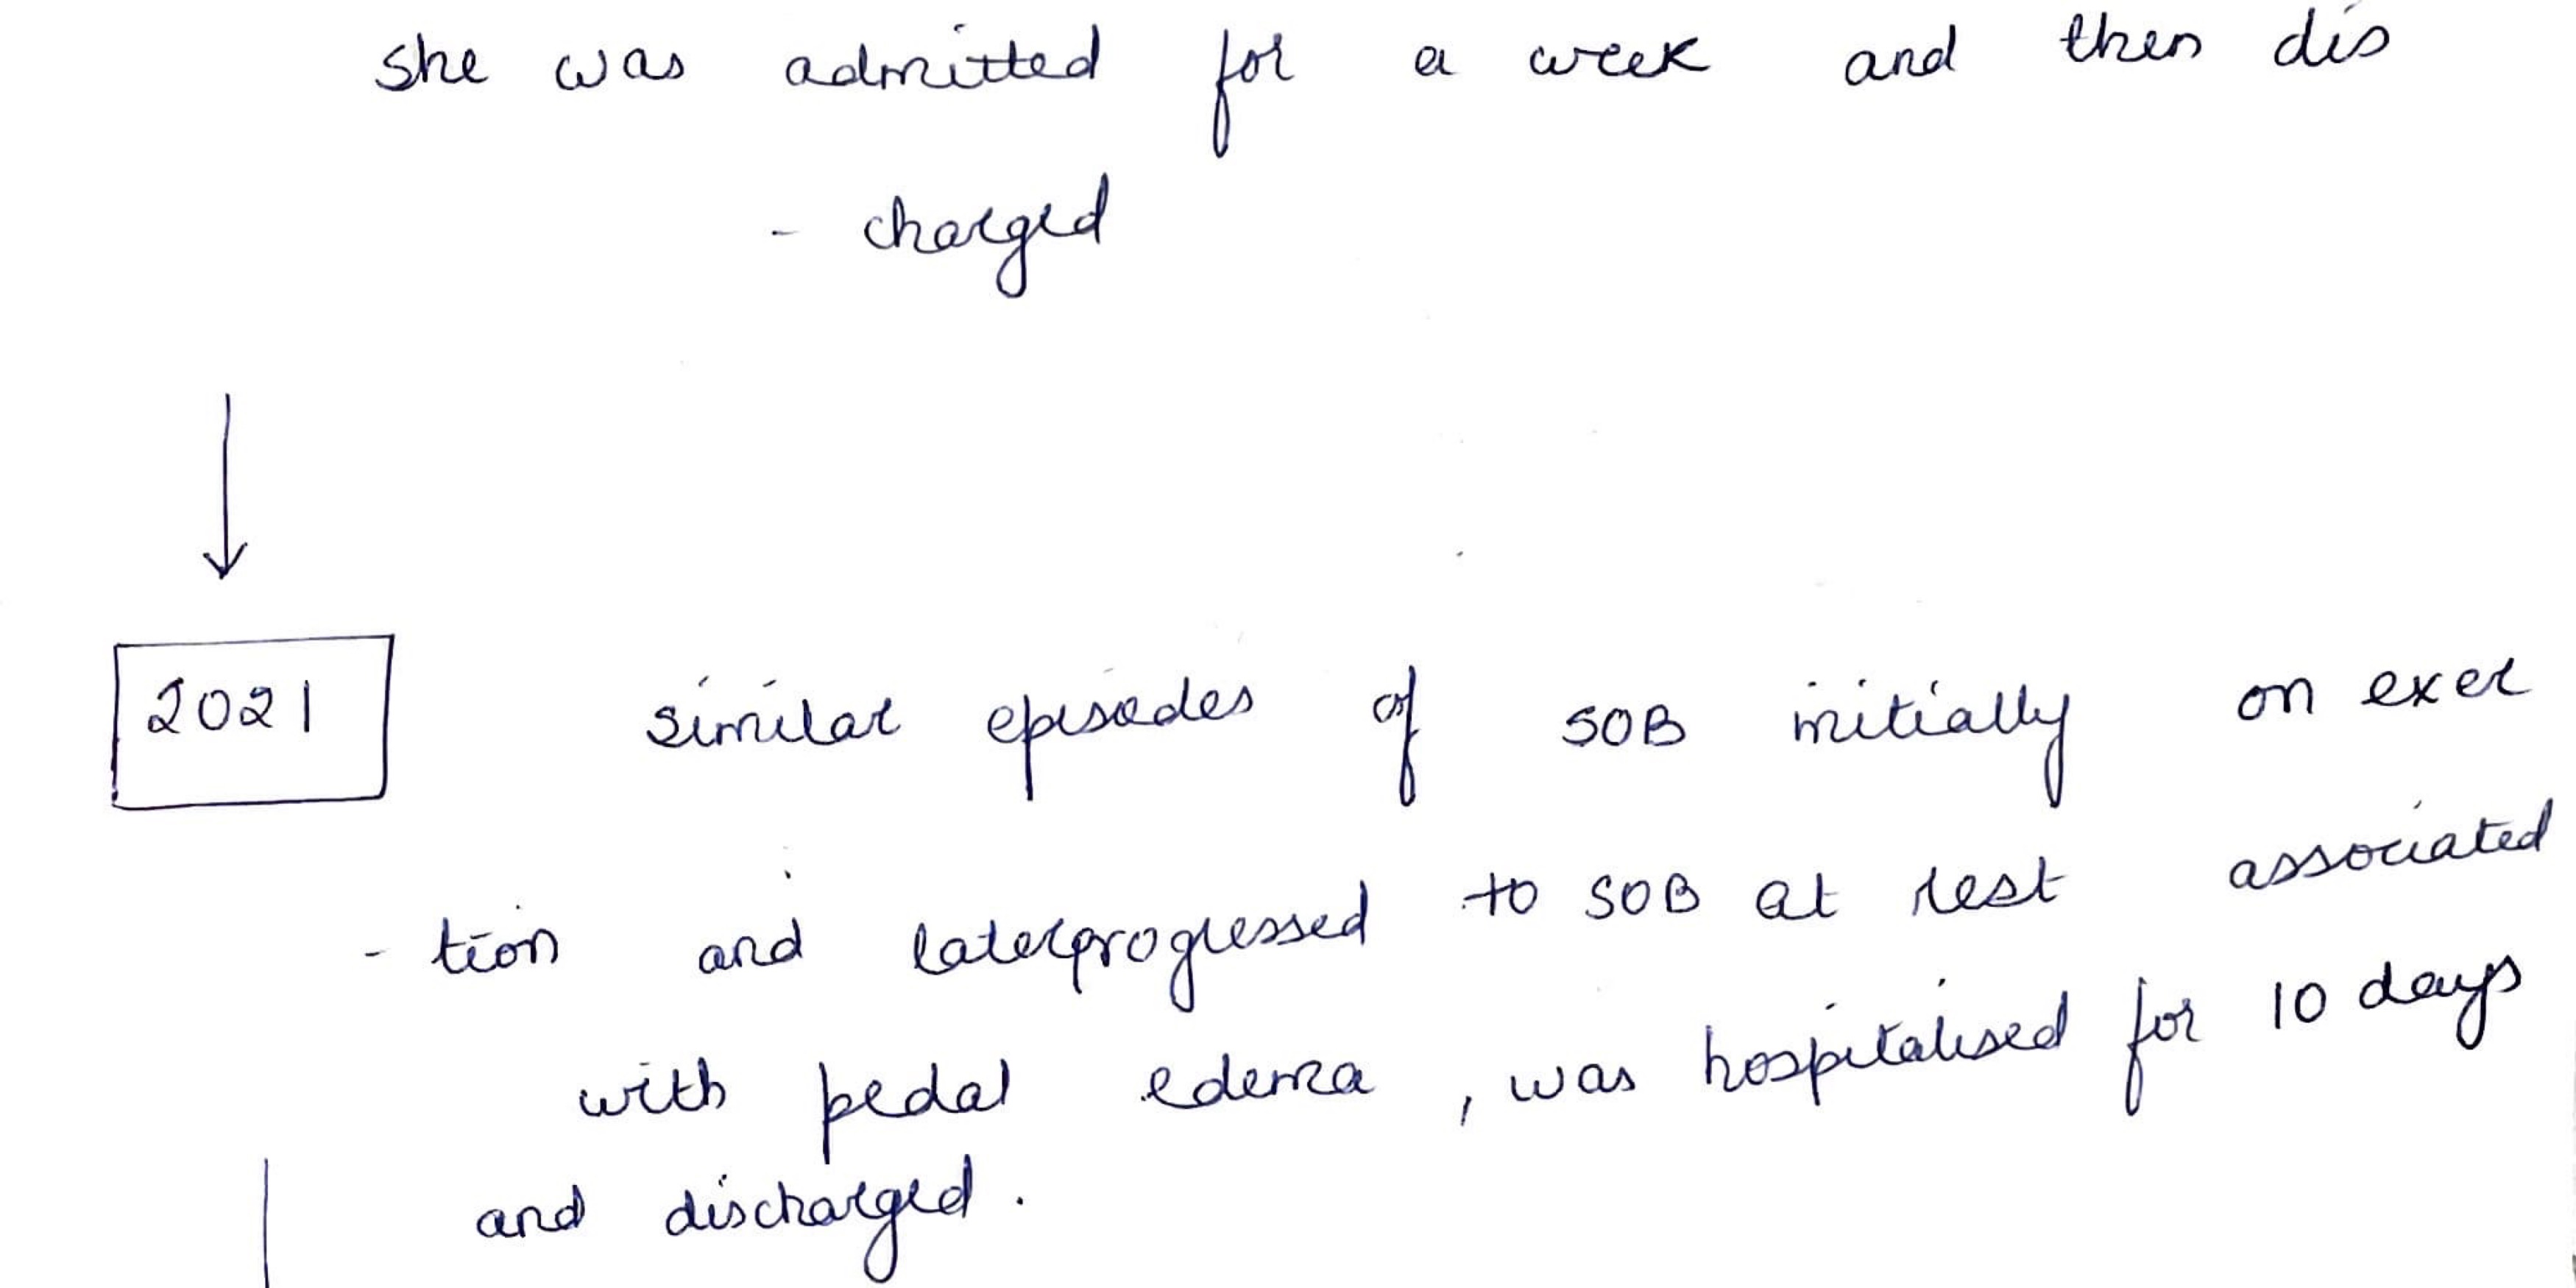 she was admitted for a week and then dis
- charged
2021 similar episodes of SOB initially on exer
- tion and later progressed to SOB at rest associated
with pedal edema , was hospitalised for 10 days
and discharged .